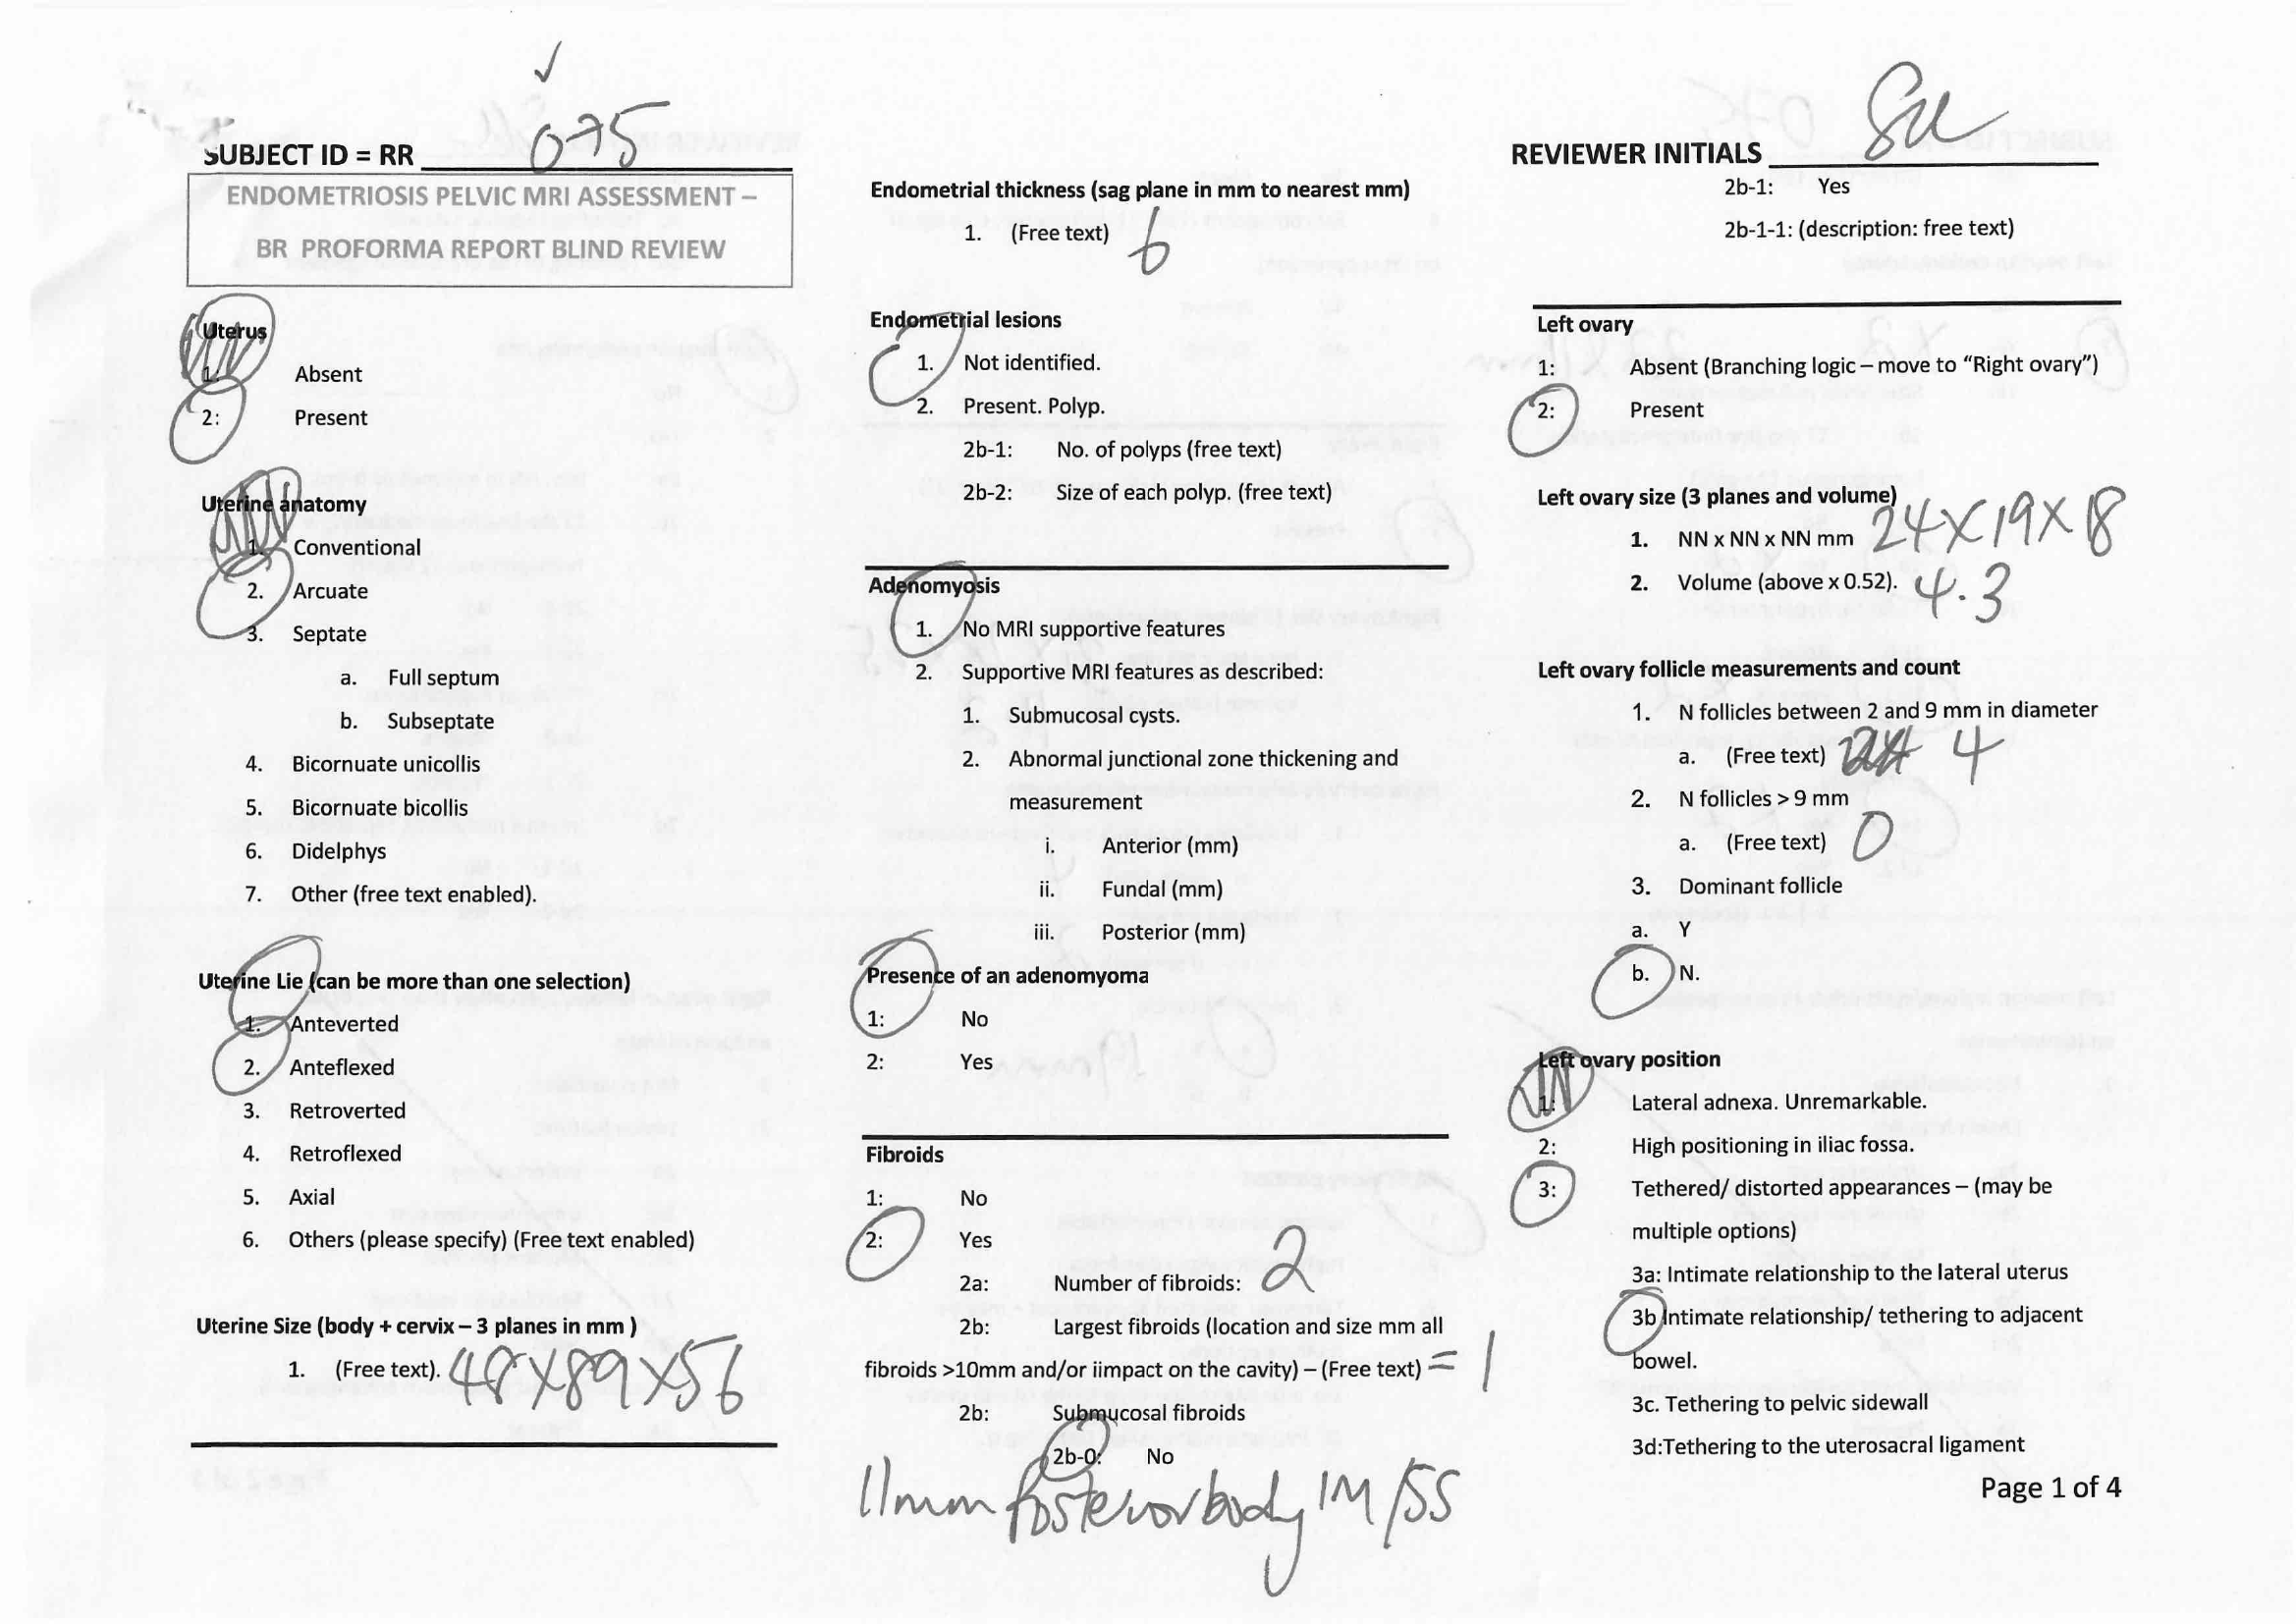 SUBJECT ID = RR 075
ENDOMETRIOSIS PELVIC MRI ASSESSMENT –
BR PROFORMA REPORT BLIND REVIEW
Uterus
1: Absent
2: Present
Uterine anatomy
1. Conventional
2. Arcuate
3. Septate
a. Full septum
b. Subseptate
4. Bicornuate unicollis
5. Bicornuate bicollis
6. Didelphys
7. Other (free text enabled).
Uterine Lie (can be more than one selection)
1. Anteverted
2. Anteflexed
3. Retroverted
4. Retroflexed
5. Axial
6. Others (please specify) (Free text enabled)
Uterine Size (body + cervix – 3 planes in mm )
1. (Free text). 48X89X56
Endometrial thickness (sag plane in mm to nearest mm)
1. (Free text) 6
Endometrial lesions
1. Not identified.
2. Present. Polyp.
2b-1: No. of polyps (free text)
2b-2: Size of each polyp. (free text)
Adenomyosis
1. No MRI supportive features
2. Supportive MRI features as described:
1. Submucosal cysts.
2. Abnormal junctional zone thickening and
measurement
i. Anterior (mm)
ii. Fundal (mm)
iii. Posterior (mm)
Presence of an adenomyoma
1: No
2: Yes
Fibroids
1: No
2: Yes
2a: Number of fibroids: 2
2b: Largest fibroids (location and size mm all
fibroids >10mm and/or iimpact on the cavity) – (Free text) = 1
2b: Submucosal fibroids
2b-0: No
11mm posterior body IM/SS
REVIEWER INITIALS
2b-1: Yes
2b-1-1: (description: free text)
Left ovary
1: Absent (Branching logic – move to “Right ovary”)
2: Present
Left ovary size (3 planes and volume)
1. NN x NN x NN mm 24X19X8
2. Volume (above x 0.52). 4.3
Left ovary follicle measurements and count
1. N follicles between 2 and 9 mm in diameter
a. (Free text) 4
2. N follicles > 9 mm
a. (Free text) 0
3. Dominant follicle
a. Y
b. N.
Left ovary position
1: Lateral adnexa. Unremarkable.
2: High positioning in iliac fossa.
3: Tethered/ distorted appearances – (may be
multiple options)
3a: Intimate relationship to the lateral uterus
3b Intimate relationship/ tethering to adjacent
bowel.
3c. Tethering to pelvic sidewall
3d:Tethering to the uterosacral ligament
Page 1 of 4